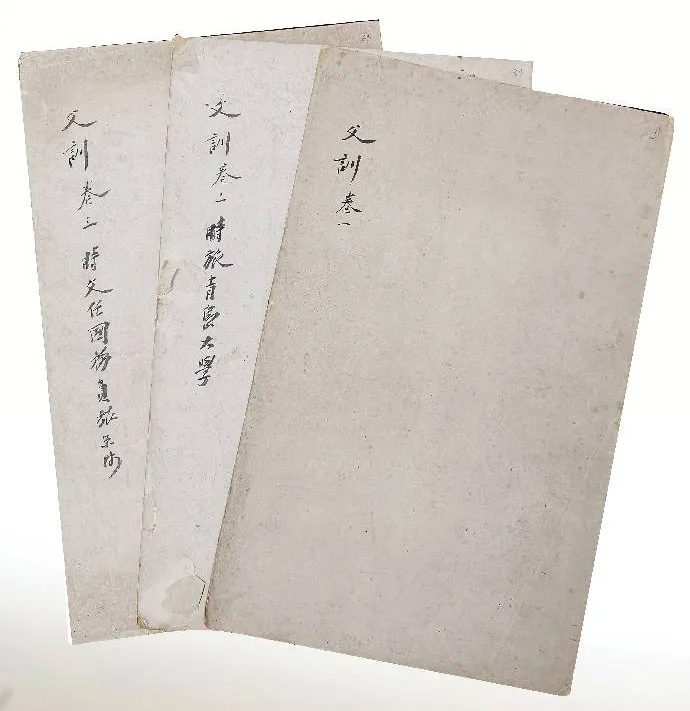 父訓卷一
父訓卷二 時旅青島大學
父訓卷三 時父任國務員旅京師